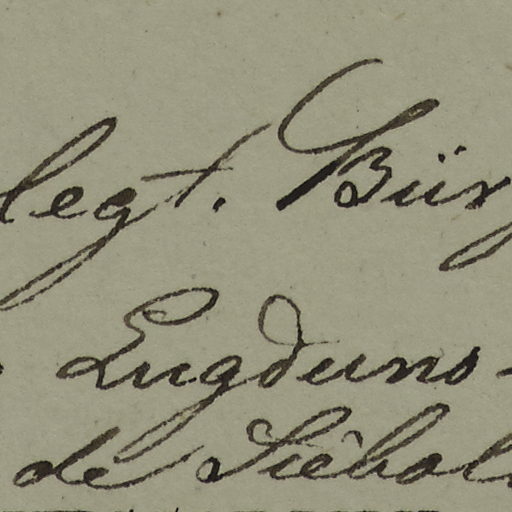 legt. Bür
Lugduno-
de Siebol